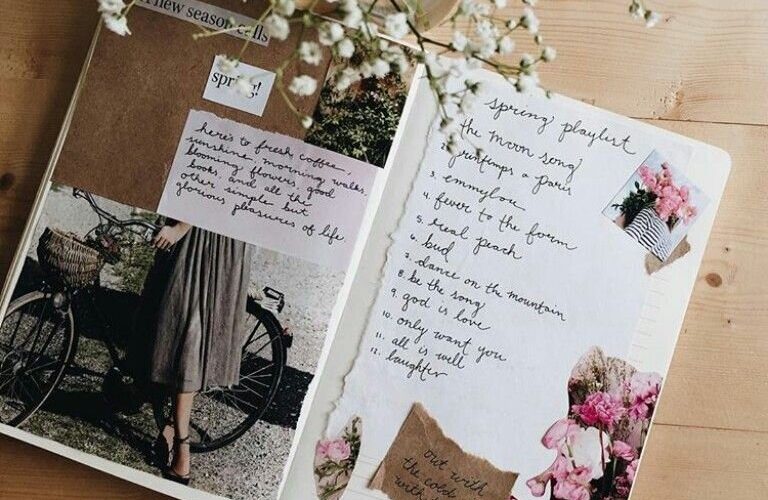 new season calls
spring!
here's to fresh coffee,
sunshine, morning walks,
blooming flowers good
books, and all the
other simple but
glorious pleasures of life.
spring playlist
the moon song
2. printemps a paris
3. emmylou
4. fever to the form
5. real peach
6. bud
7. dance on the mountain
8. be the song
9. god is love
10. only want you
11. all is well
12. laughter
out with
the cold
with